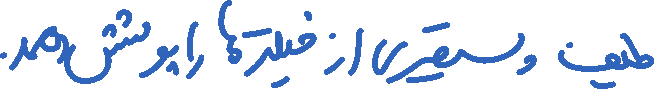 طیف وسیعتری از فیلدها را پوشش دهد.